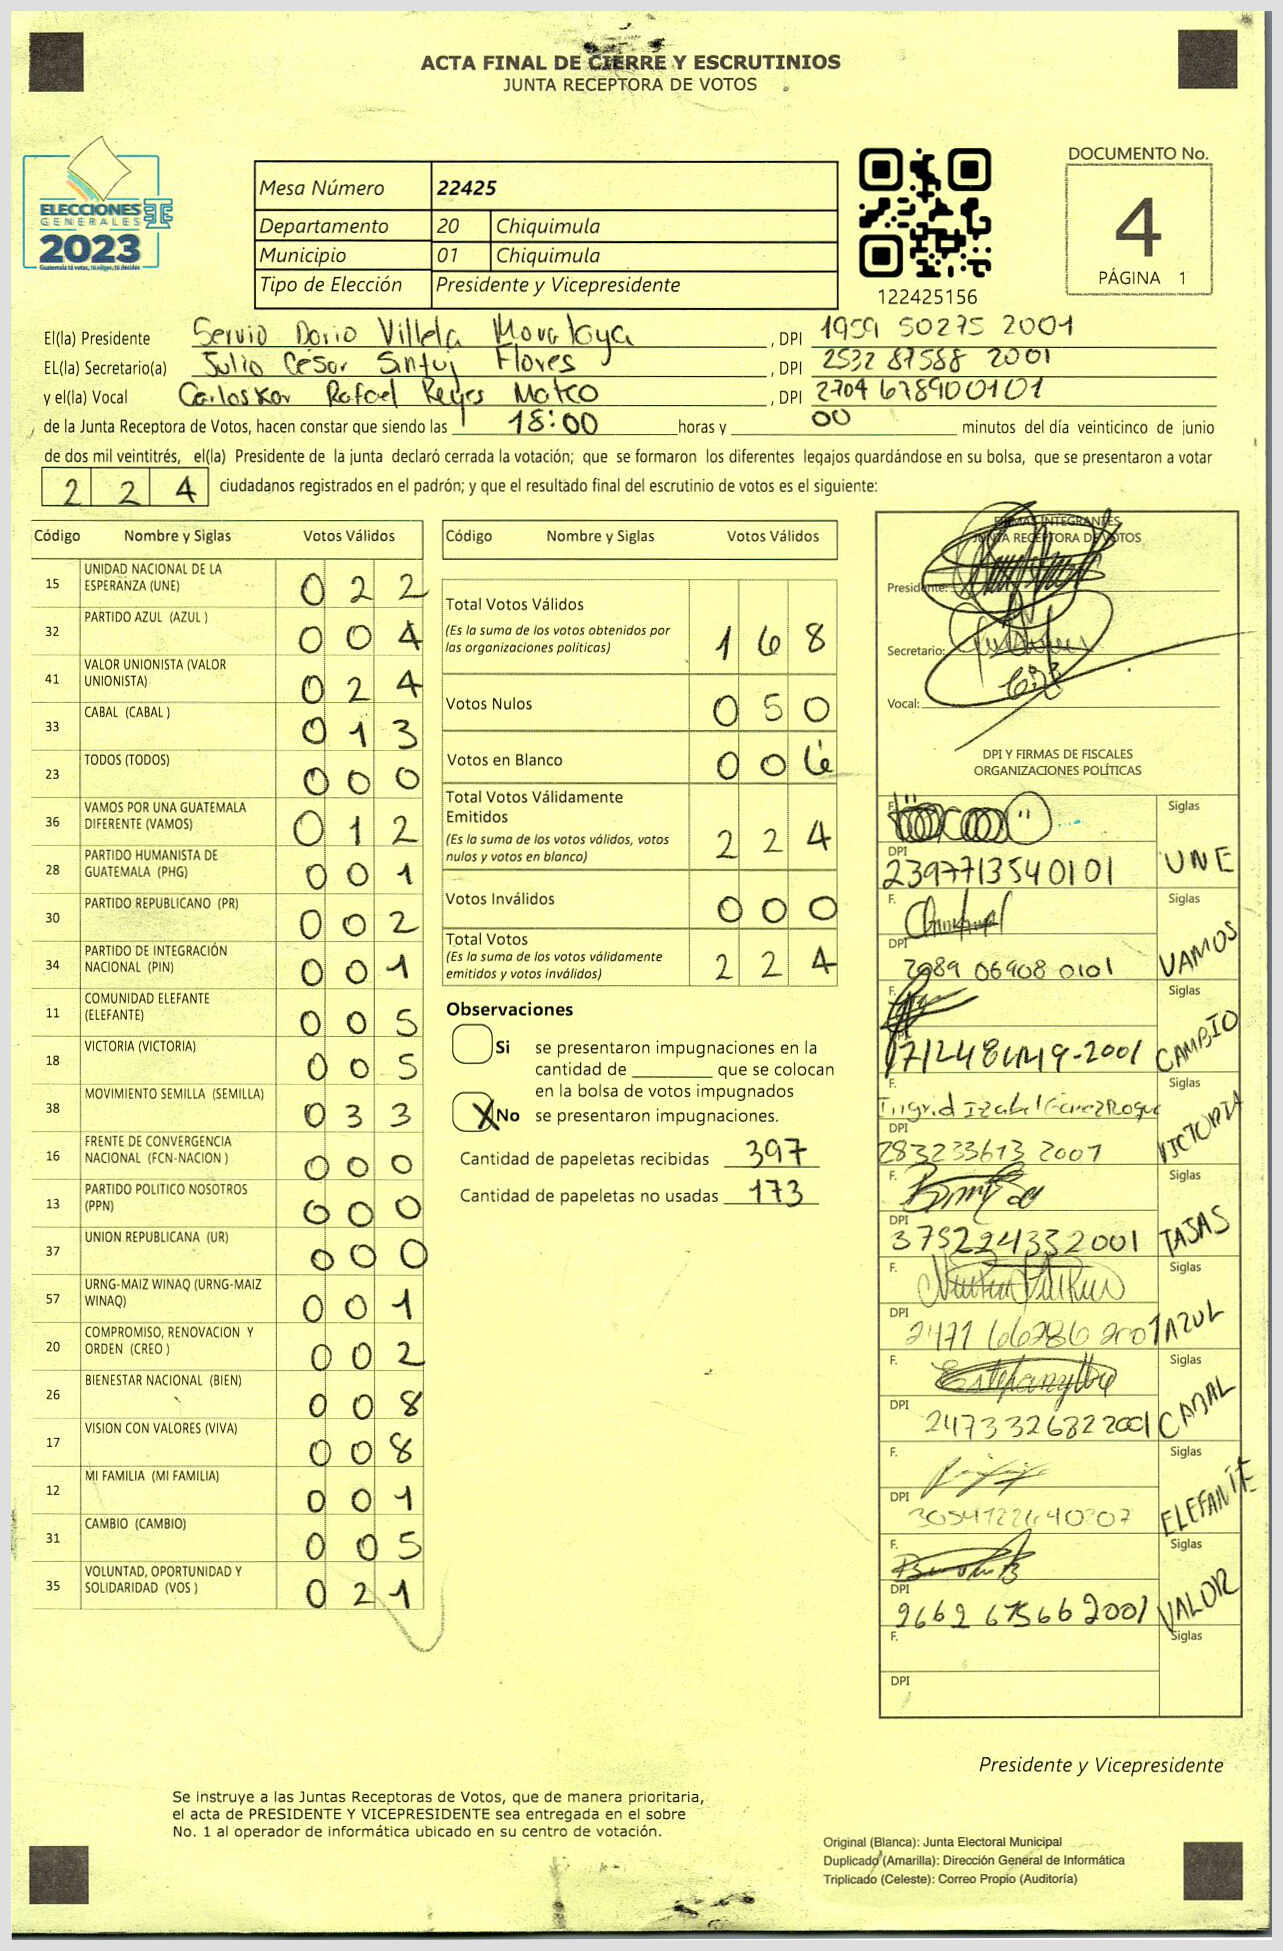 ACTA FINAL DE CIERRE Y ESCRUTINIOS
JUNTA RECEPTORA DE VOTOS
ELECCIONES
GENERALES
2023
Guatemala tú votas, tú eliges, tú decides
Mesa Número 22425
Departamento 20 Chiquimula
Municipio 01 Chiquimula
Tipo de Elección Presidente y Vicepresidente
122425156
DOCUMENTO No.
4
PÁGINA 1
El(la) Presidente Servio Dario Villela , DPI 1959 50275 2001
EL(la) Secretario(a) Julio César Flores , DPI 2532 87588 2001
y el(la) Vocal Rafael Reyes Mateo , DPI 2704 678900101
de la Junta Receptora de Votos, hacen constar que siendo las 18:00 horas y 00 minutos del día veinticinco de junio
de dos mil veintitrés, el(la) Presidente de la junta declaró cerrada la votación; que se formaron los diferentes legajos guardándose en su bolsa, que se presentaron a votar
224 ciudadanos registrados en el padrón; y que el resultado final del escrutinio de votos es el siguiente:
Código Nombre y Siglas Votos Válidos
15 UNIDAD NACIONAL DE LA ESPERANZA (UNE) 022
32 PARTIDO AZUL (AZUL ) 004
41 VALOR UNIONISTA (VALOR UNIONISTA) 024
33 CABAL (CABAL ) 013
23 TODOS (TODOS) 000
36 VAMOS POR UNA GUATEMALA DIFERENTE (VAMOS) 012
28 PARTIDO HUMANISTA DE GUATEMALA (PHG) 001
30 PARTIDO REPUBLICANO (PR) 002
34 PARTIDO DE INTEGRACIÓN NACIONAL (PIN) 001
11 COMUNIDAD ELEFANTE (ELEFANTE) 005
18 VICTORIA (VICTORIA) 005
38 MOVIMIENTO SEMILLA (SEMILLA) 033
16 FRENTE DE CONVERGENCIA NACIONAL (FCN-NACION ) 000
13 PARTIDO POLITICO NOSOTROS (PPN) 000
37 UNION REPUBLICANA (UR) 000
57 URNG-MAIZ WINAQ (URNG-MAIZ WINAQ) 001
20 COMPROMISO, RENOVACION Y ORDEN (CREO ) 002
26 BIENESTAR NACIONAL (BIEN) 008
17 VISION CON VALORES (VIVA) 008
12 MI FAMILIA (MI FAMILIA) 001
31 CAMBIO (CAMBIO) 005
35 VOLUNTAD, OPORTUNIDAD Y SOLIDARIDAD (VOS ) 021
Código Nombre y Siglas Votos Válidos
Total Votos Válidos 168
(Es la suma de los votos obtenidos por
las organizaciones políticas)
Votos Nulos 050
Votos en Blanco 006
Total Votos Válidamente
Emitidos 224
(Es la suma de los votos válidos, votos
nulos y votos en blanco)
Votos Inválidos 000
Total Votos 224
(Es la suma de los votos válidamente
emitidos y votos inválidos)
Observaciones
Si se presentaron impugnaciones en la
cantidad de ________ que se colocan
en la bolsa de votos impugnados
X No se presentaron impugnaciones.
Cantidad de papeletas recibidas 397
Cantidad de papeletas no usadas 173
FIRMAS INTEGRANTES
JUNTA RECEPTORA DE VOTOS
Presidente:
Secretario:
Vocal:
DPI Y FIRMAS DE FISCALES
ORGANIZACIONES POLÍTICAS
F. Siglas
DPI 2397713540101 UNE
F. Siglas
DPI 2989 06908 0101 VAMOS
F. Siglas
CAMBIO
F. Ingrid Izabel Siglas
DPI 283233613 2001 VICTORIA
F. Siglas
DPI 375224332001
F. Siglas
DPI 2471 66286 2001 AZUL
F. Siglas
DPI 2473326822001 CABAL
F. Siglas
DPI ELEFANTE
F. Siglas
DPI 2662 67566 2001 VALOR
F. Siglas
DPI
Presidente y Vicepresidente
Se instruye a las Juntas Receptoras de Votos, que de manera prioritaria,
el acta de PRESIDENTE Y VICEPRESIDENTE sea entregada en el sobre
No. 1 al operador de informática ubicado en su centro de votación.
Original (Blanca): Junta Electoral Municipal
Duplicado (Amarilla): Dirección General de Informática
Triplicado (Celeste): Correo Propio (Auditoría)